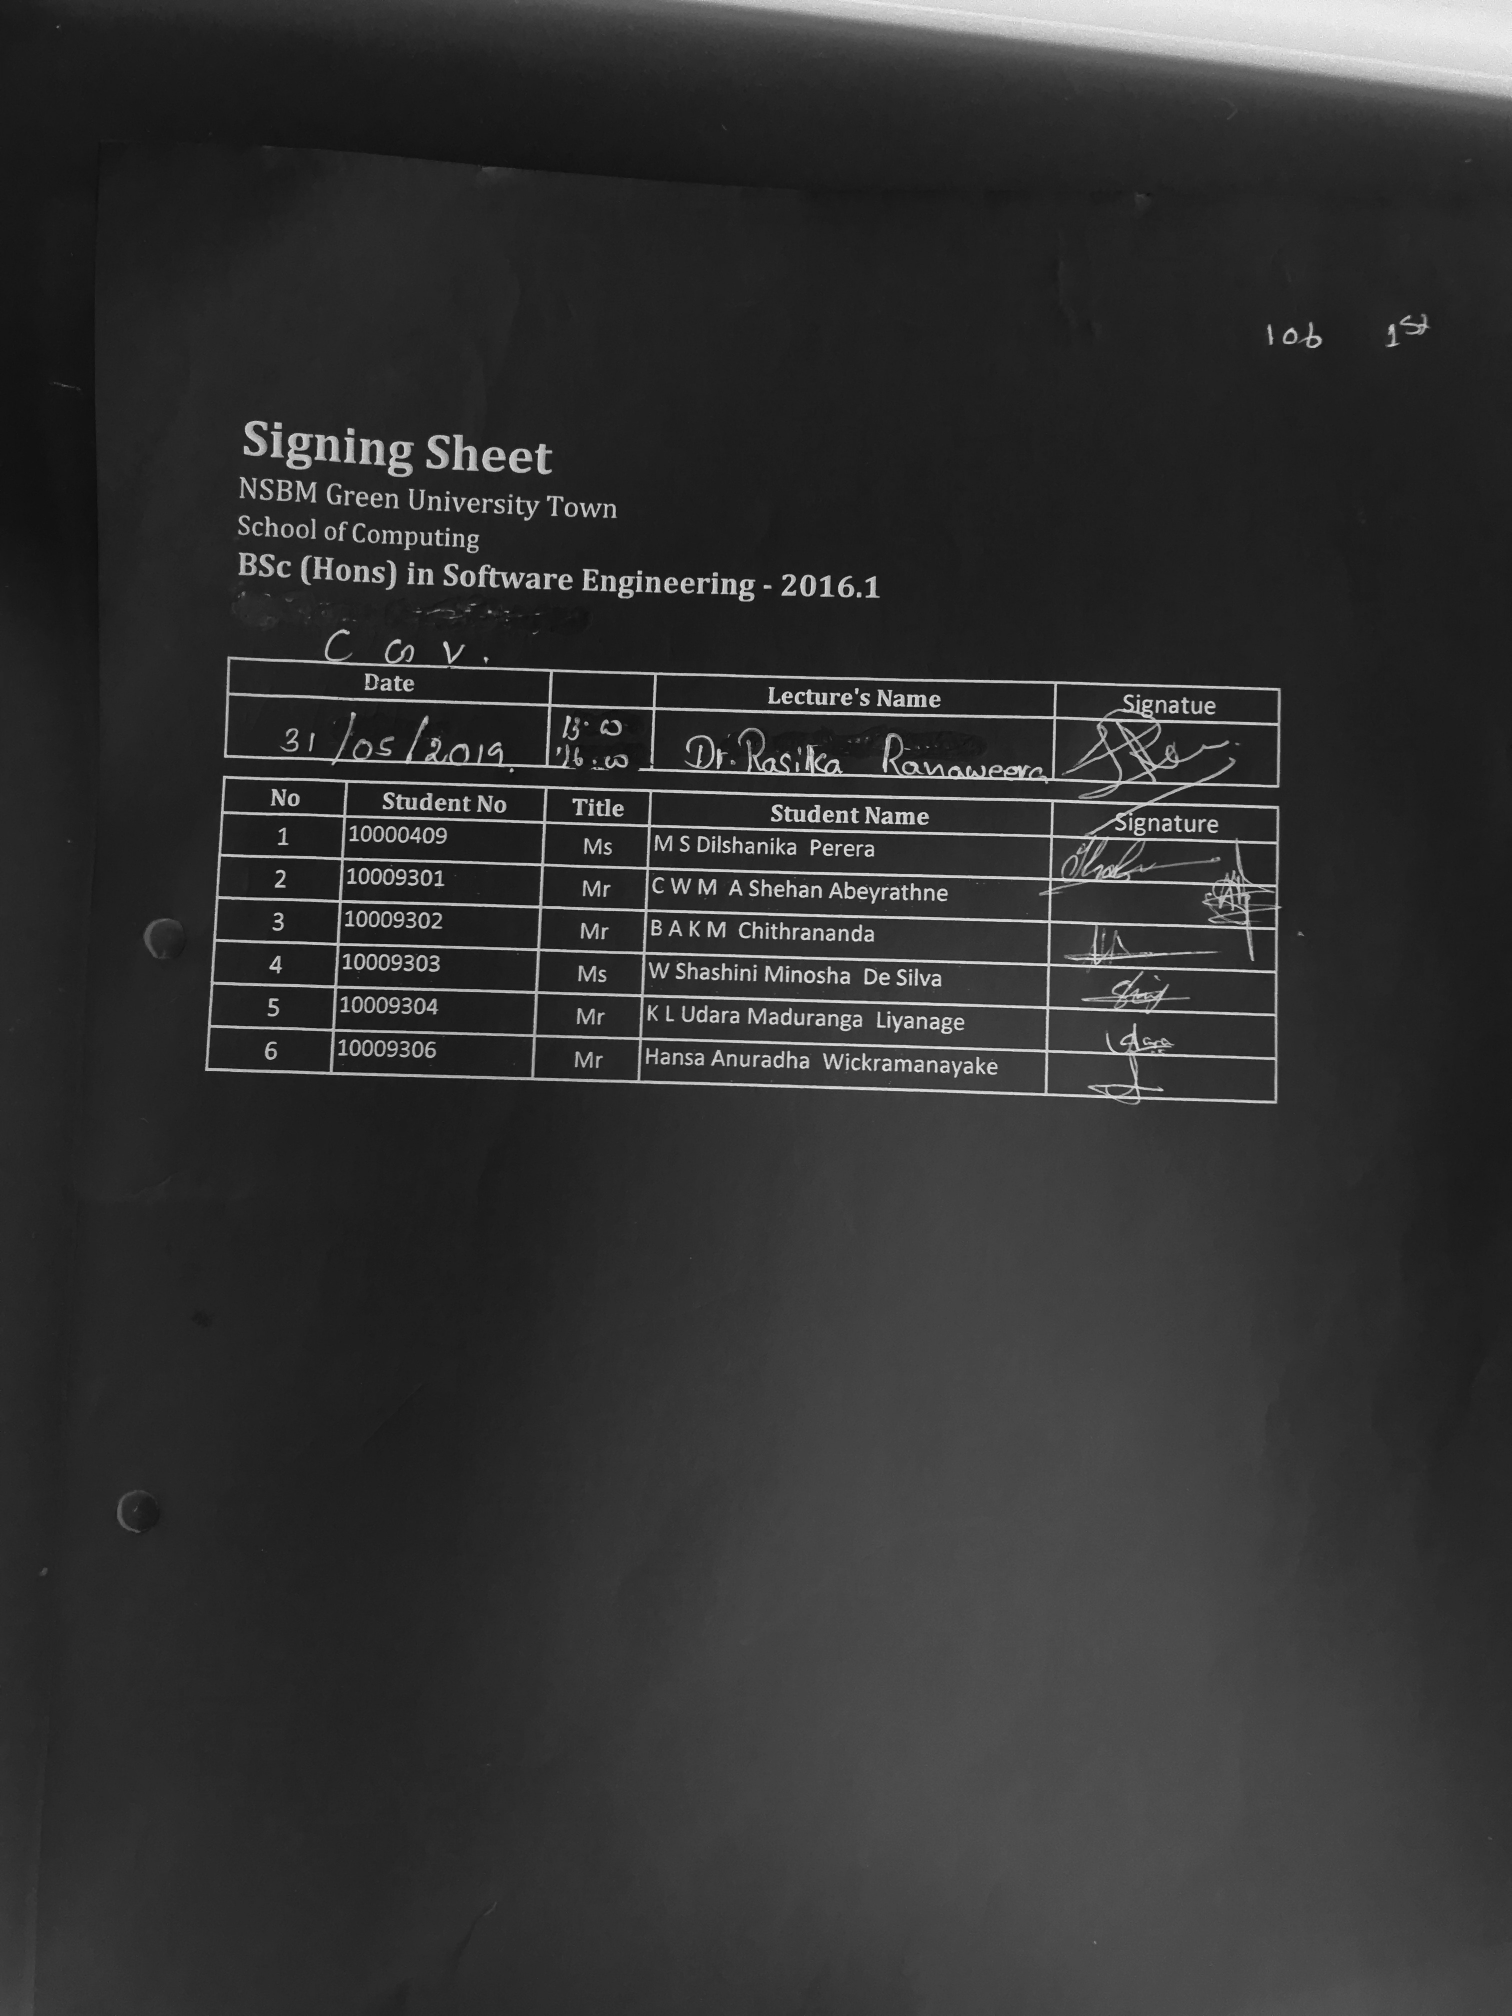 106 1st
Signing Sheet
NSBM Green University Town
School of Computing
BSc (Hons) in Software Engineering - 2016.1
C G V .
Date Lecture's Name Signatue
31/05/2019. 13.00 Dr. Rasika Ranaweera
16.00
No Student No Title Student Name Signature
1 10000409 Ms M S Dilshanika Perera
2 10009301 Mr C W M A Shehan Abeyrathne
3 10009302 Mr B A K M Chithrananda
4 10009303 Ms W Shashini Minosha De Silva
5 10009304 Mr K L Udara Maduranga Liyanage
6 10009306 Mr Hansa Anuradha Wickramanayake